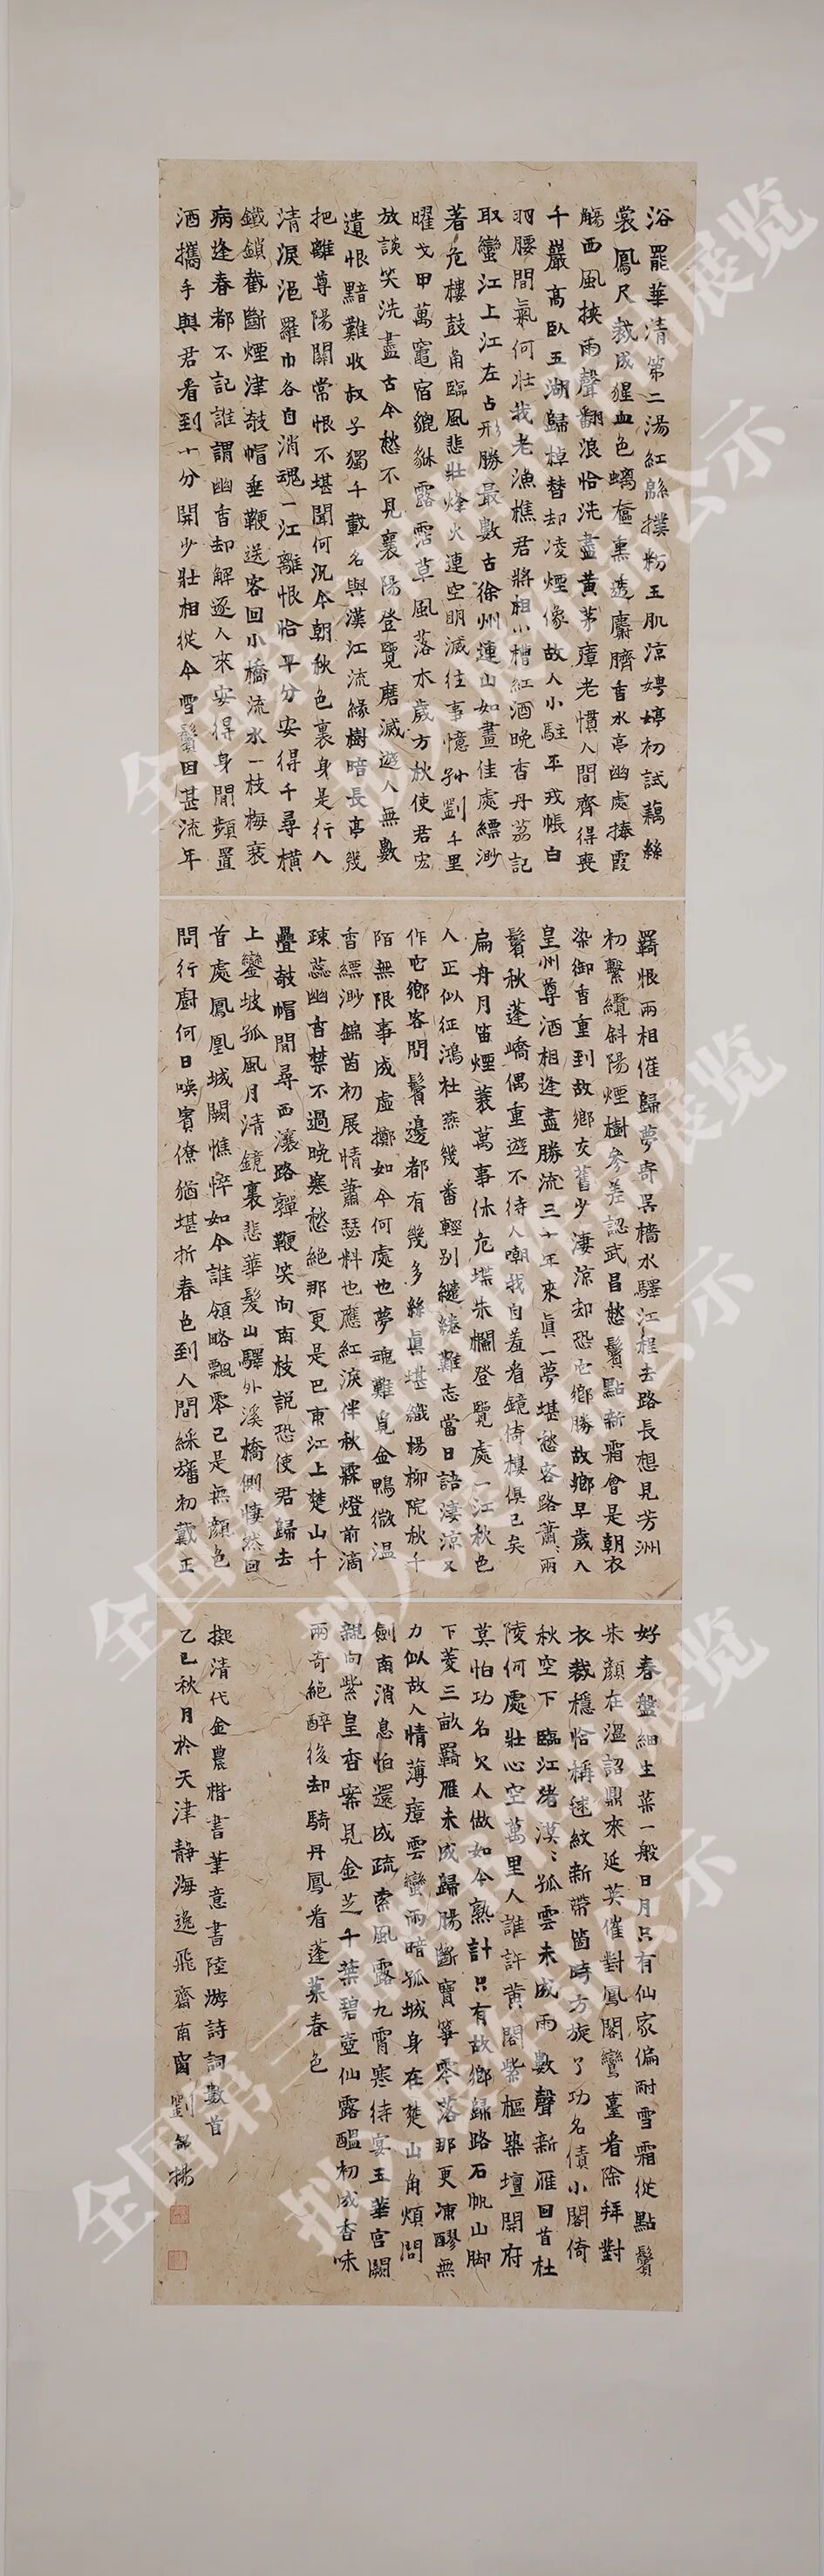 浴罷華清第二湯紅緜撲粉玉肌涼娉婷初試藕絲
裳鳳尺裁成猩血色螭奩熏透麝臍香水亭幽處捧霞
觴西風挾雨聲翻浪恰洗盡黃茅瘴老慣人間齊得喪
千巖高臥五湖歸棹替却凌煙像故人小駐平戎帳白
羽腰間氣何壯我老漁樵君將相小槽紅酒晚香丹荔記
取蠻江上江左占形勝最數古徐州連山如畫佳處縹渺
著危樓鼓角臨風悲壯烽火連空明滅往事憶孫劉千里
曜戈甲萬竈宿貔貅露霑草風落木歲方秋使君宏
放談笑洗盡古今愁不見襄陽登覽磨滅遊人無數
遺恨黯難收叔子獨千載名與漢江流綠樹暗長亭幾
把離尊陽關常恨不堪聞何況今朝秋色裏身是行人
清淚浥羅巾各自消魂一江離恨恰平分安得千尋橫
鐵鎖截斷煙津攲帽垂鞭送客回小橋流水一枝梅衰
病逢春都不記誰謂幽香却解逐人來安得身閒頻置
酒攜手與君看到十分開少壯相從今雪鬢因甚流年
羈恨兩相催歸夢寄吳檣水驛江程去路長想見芳洲
初繫纜斜陽煙樹參差認武昌愁鬢點新霜曾是朝衣
染御香重到故鄉交舊少淒涼却恐它鄉勝故鄉早歲入
皇州尊酒相逢盡勝流三十年來真一夢堪愁客路蕭蕭兩
鬢秋蓬嶠偶重遊不待人嘲我自羞看鏡倚樓俱已矣
扁舟月笛煙蓑萬事休危堞朱欄登覽處一江秋色
人正似征鴻社燕幾番輕別繾綣難忘當日語淒涼又
作它鄉客問鬢邊都有幾多絲真堪織楊柳院秋千
陌無限事成虛擲如今何處也夢魂難覓金鴨微溫
香縹渺錦茵初展情蕭瑟料也應紅淚伴秋霖燈前滴
疎蕊幽香禁不過晚寒愁絕那更是巴東江上楚山千
疊攲帽閒尋西瀼路嚲鞭笑向南枝說恐使君歸去
上鑾坡孤風月清鏡裏悲華髮山驛外溪橋側悽然回
首處鳳凰城闕憔悴如今誰領略飄零已是無顏色
問行廚何日喚賓僚猶堪折春色到人間綵旛初戴正
好春盤細生菜一般日月只有仙家偏耐雪霜從點鬢
朱顏在溫詔鼎來延英催對鳳閣鸞臺看除拜對
衣裁穩恰稱毬紋新帶箇時方旋了功名債小閣倚
秋空下臨江渚漠漠孤雲未成雨數聲新雁回首杜
陵何處壯心空萬里人誰許黃閣紫樞築壇開府
莫怕功名欠人做如今熟計只有故鄉歸路石帆山脚
下菱三畝羈雁未成歸腸斷寶箏零落那更凍醪無
力似故人情薄瘴雲蠻雨暗孤城身在楚山角煩問
劍南消息怕還成疏索風露九霄寒侍宴玉華宮闕
親向紫皇香案見金芝千葉碧壺仙露醞初成香味
兩奇絕醉後却騎丹鳳看蓬萊春色
擬清代金農楷書筆意書陸游詩詞數首
乙巳秋月於天津靜海逸飛齋南窗劉揚